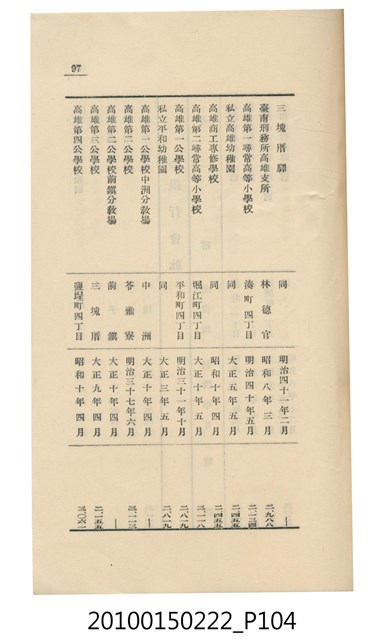 97
三塊厝驛 同 明治四十一年二月 —
臺南刑務所高雄支所 林德官 昭和八年三月 二九八八
高雄第一尋常高等小學校 湊町四丁目 明治四十年五月 二二三四
私立高雄幼稚園 同 大正五年五月 二四五五
高雄商工專修學校 同 昭和十年四月 二四五五
高雄第二尋常高等小學校 堀江町四丁目 大正十年五月 三二一八
高雄第一公學校 平和町四丁目 明治三十一年十月 二八一九
私立平和幼稚園 同 大正三年五月 二八一九
高雄第一公學校中洲分敎場 中洲 大正十年四月 —
高雄第二公學校 苓雅寮 明治三十七年六月 三二二三
高雄第二公學校前鎭分敎場 前鎭 大正十年四月 —
高雄第三公學校 三塊厝 大正九年四月 二二五五
高雄第四公學校 鹽埕町四丁目 昭和十年四月
20100150222_P104